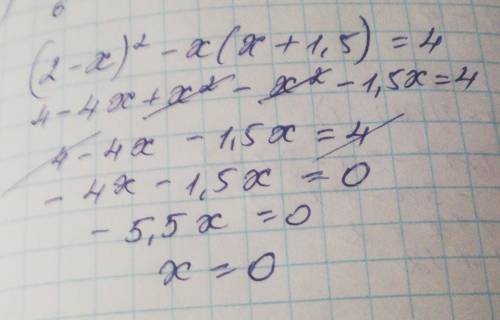 (2-x)² - x(x+1,5) = 4
4-4x+x² - x² - 1,5x=4
4-4x - 1,5x = 4
-4x - 1,5x = 0
-5,5x = 0
x = 0